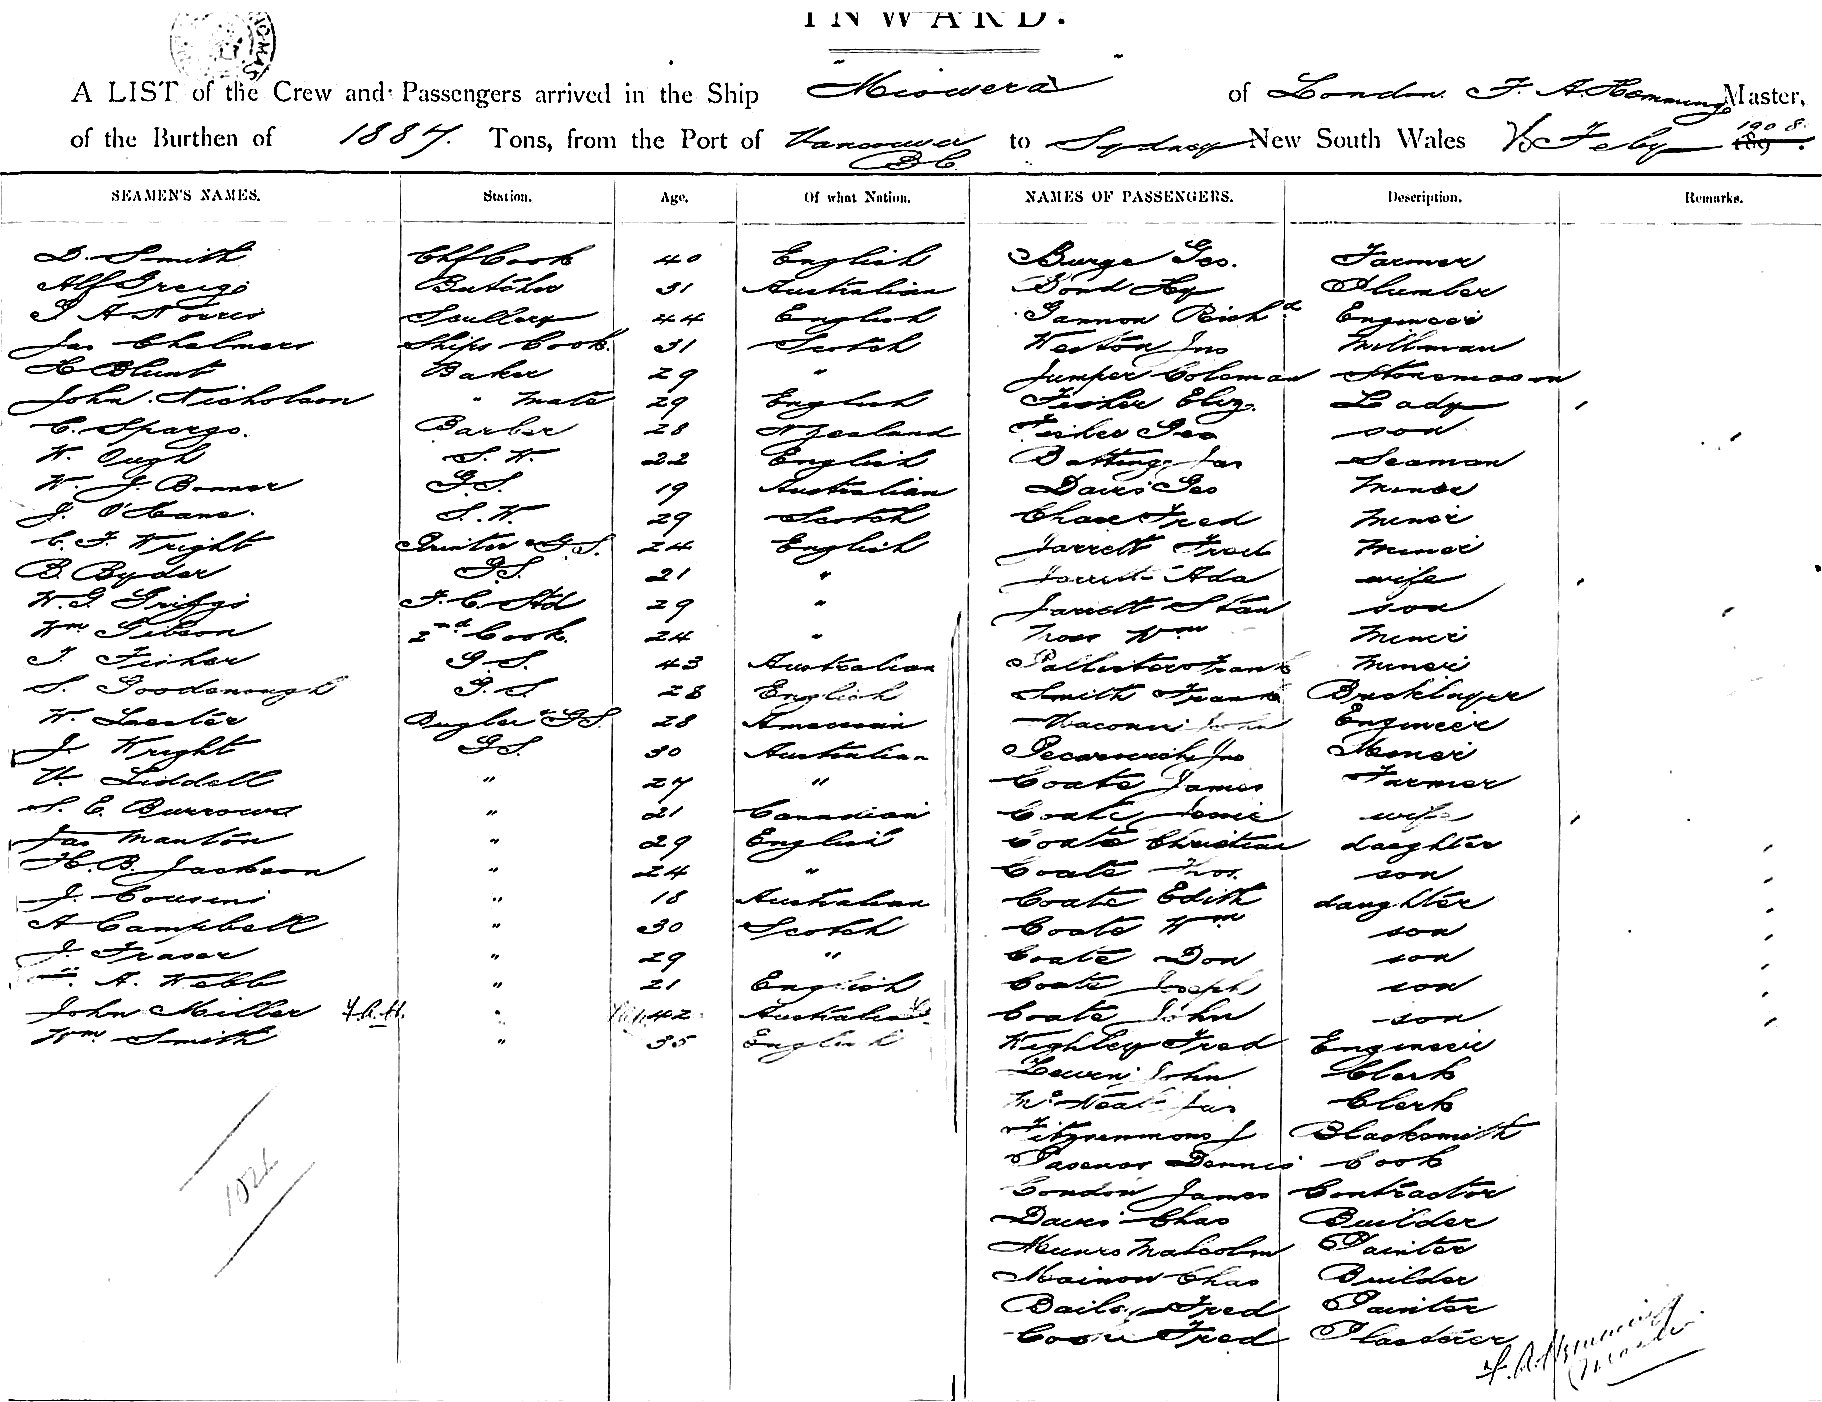 INWARD.
A LIST of the Crew and Passengers arrived in the Ship "Miowera" of London. F. A. Hemming Master,
of the Burthen of 1887. Tons, from the Port of Vancouver BC to Sydney New South Wales Feby 1908.
SEAMEN'S NAMES. Station. Age. Of what Nation. NAMES OF PASSENGERS. Description. Remarks.
D. Smith Chf Cook 40 English Burge Geo. Farmer
Alf Greig Butcher 31 Australian Bond Hy Plumber
G A Norris Scullery 44 English Gannon Richd Engineer
Jas Chalmers Ships Cook. 31 Scotch Weston Jno Millman
Blunt Baker 29 " Jumper Coleman Stonemason
John Nicholson " Mate 29 English Fisher Eliz. Lady
C. Spargo. Barber 28 N Zealand Fisher Geo son
W. Ough S. W. 22 English Batting Jas Seaman
W. J. Bonner G.S. 19 Australian Davis Geo Miner
J. O'Hane. S. W. 29 Scotch Chase Fred Miner
C. F. Wright Printer & G.S. 24 English Jarrett Fred Miner
B. Byder G.S. 21 " Jarrett Ada wife
W. G. F. C. Std 29 " Jarrett Stan son
Wm Gibson 2nd Cook. 24 " Wm Miner
J. Fisher G.S. 43 Australian Pallister Frank Miner
S. Goodenough G.S. 28 English Smith Frank Bricklayer
W. Lester Bugler & G.S. 28 American John Engineer
J. Wright G.S. 30 Australian Jno Miner
W. Liddell " 27 " Coate James Farmer
S. E. Burrows " 21 Canadian Coate Jessie wife
Jas Manton " 29 English Coate Christian daughter
H. B. Jackson " 24 " Coate Thos. son
J. Cousins " 18 Australian Coate Edith daughter
A Campbell " 30 Scotch Coate Wm son
J. Fraser " 29 " Coate Don son
A. Webb " 21 English Coate Joseph son
John Miller F.A.H. " 42 Australian Coate John son
Wm Smith " 35 English Wighley Fred Engineer
John Clerk
McNeal Jas Clerk
Fitzsimmons J Blacksmith
Dennis Cook
Condon James Contractor
Davis Chas Builder
Munro Malcolm Painter
Mainon Chas Builder
Baily Fred Painter
Cook Fred Plasterer
F. A. Hemming
Master
1026